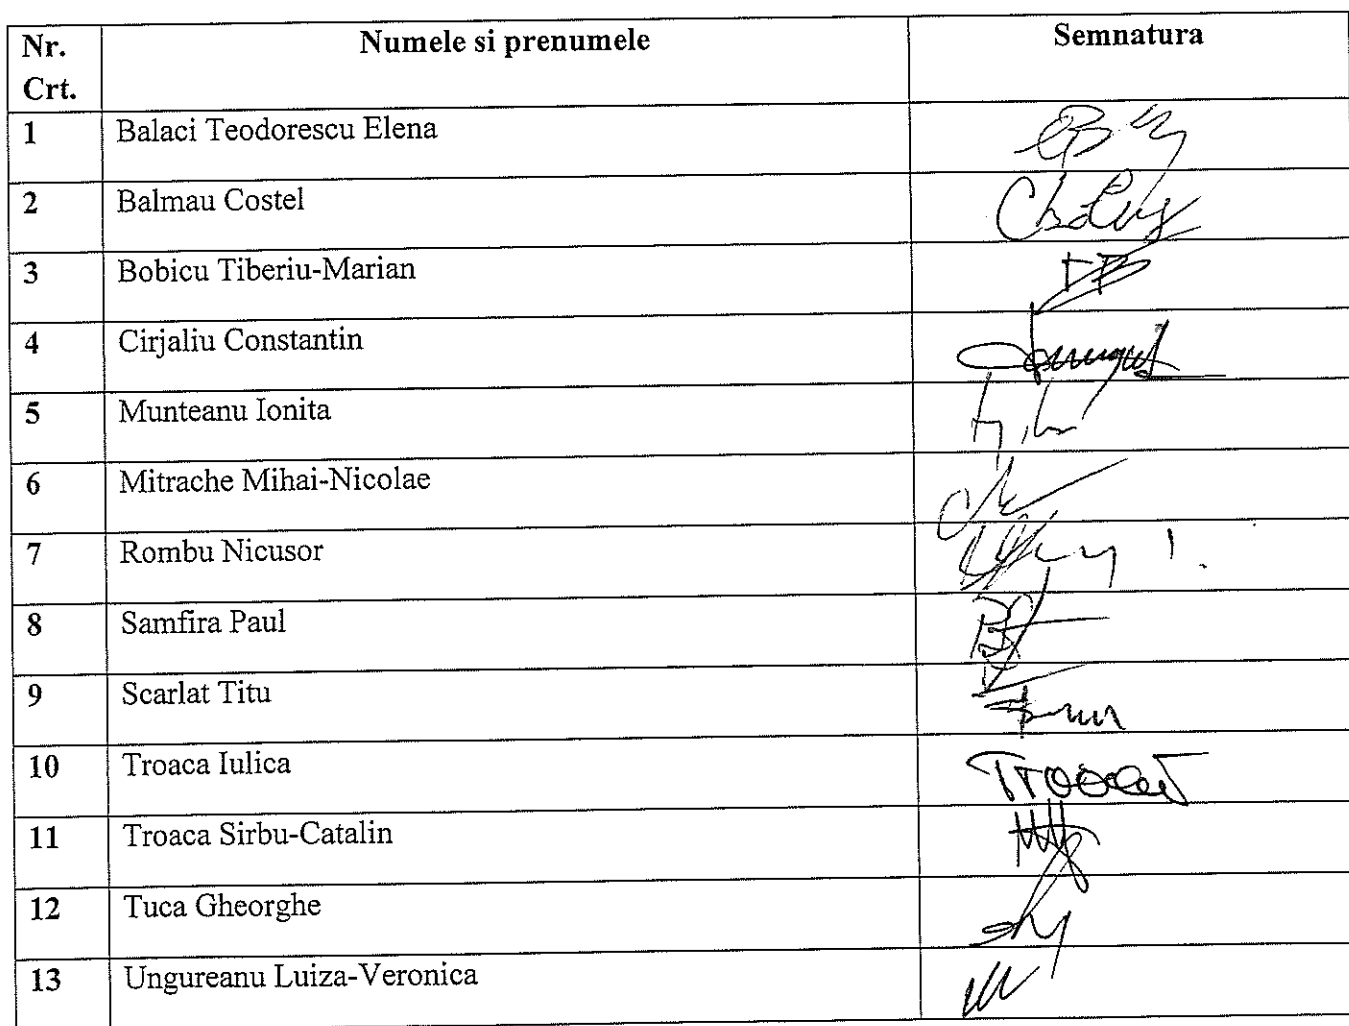 Nr. Crt. Numele si prenumele Semnatura
1 Balaci Teodorescu Elena
2 Balmau Costel
3 Bobicu Tiberiu-Marian
4 Cirjaliu Constantin
5 Munteanu Ionita
6 Mitrache Mihai-Nicolae
7 Rombu Nicusor
8 Samfira Paul
9 Scarlat Titu
10 Troaca Iulica
11 Troaca Sirbu-Catalin
12 Tuca Gheorghe
13 Ungureanu Luiza-Veronica